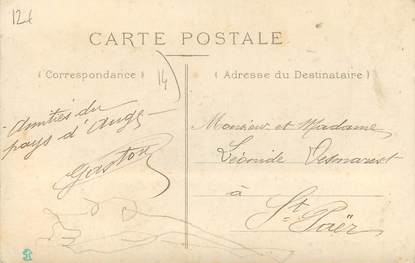 12€
CARTE POSTALE
14
(Correspondance)
(Adresse du Destinataire)
Amitiés du
pays d'Auge
Gaston
Monsieur et Madame
Léonide
à
St. Paër